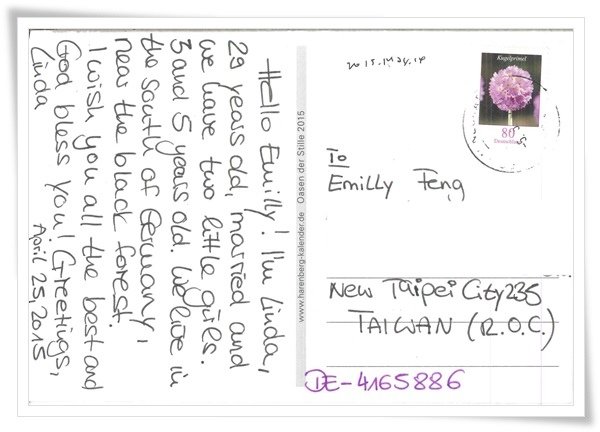 Hello Emilly! I'm Linda,
29 years old, married and
we have two little girls.
3 and 5 years old. We live in
the south of Germany,
near the black forest.
I wish you all the best and
God bless you! Greetings,
Linda
April 25, 2015
www.harenberg-kalender.de Oasen der Stille 2015
2015.May.19
Kugelprimel
80
Deutschland
To
Emilly Feng
New Taipei City 235
TAIWAN (R.O.C.)
DE-4165886